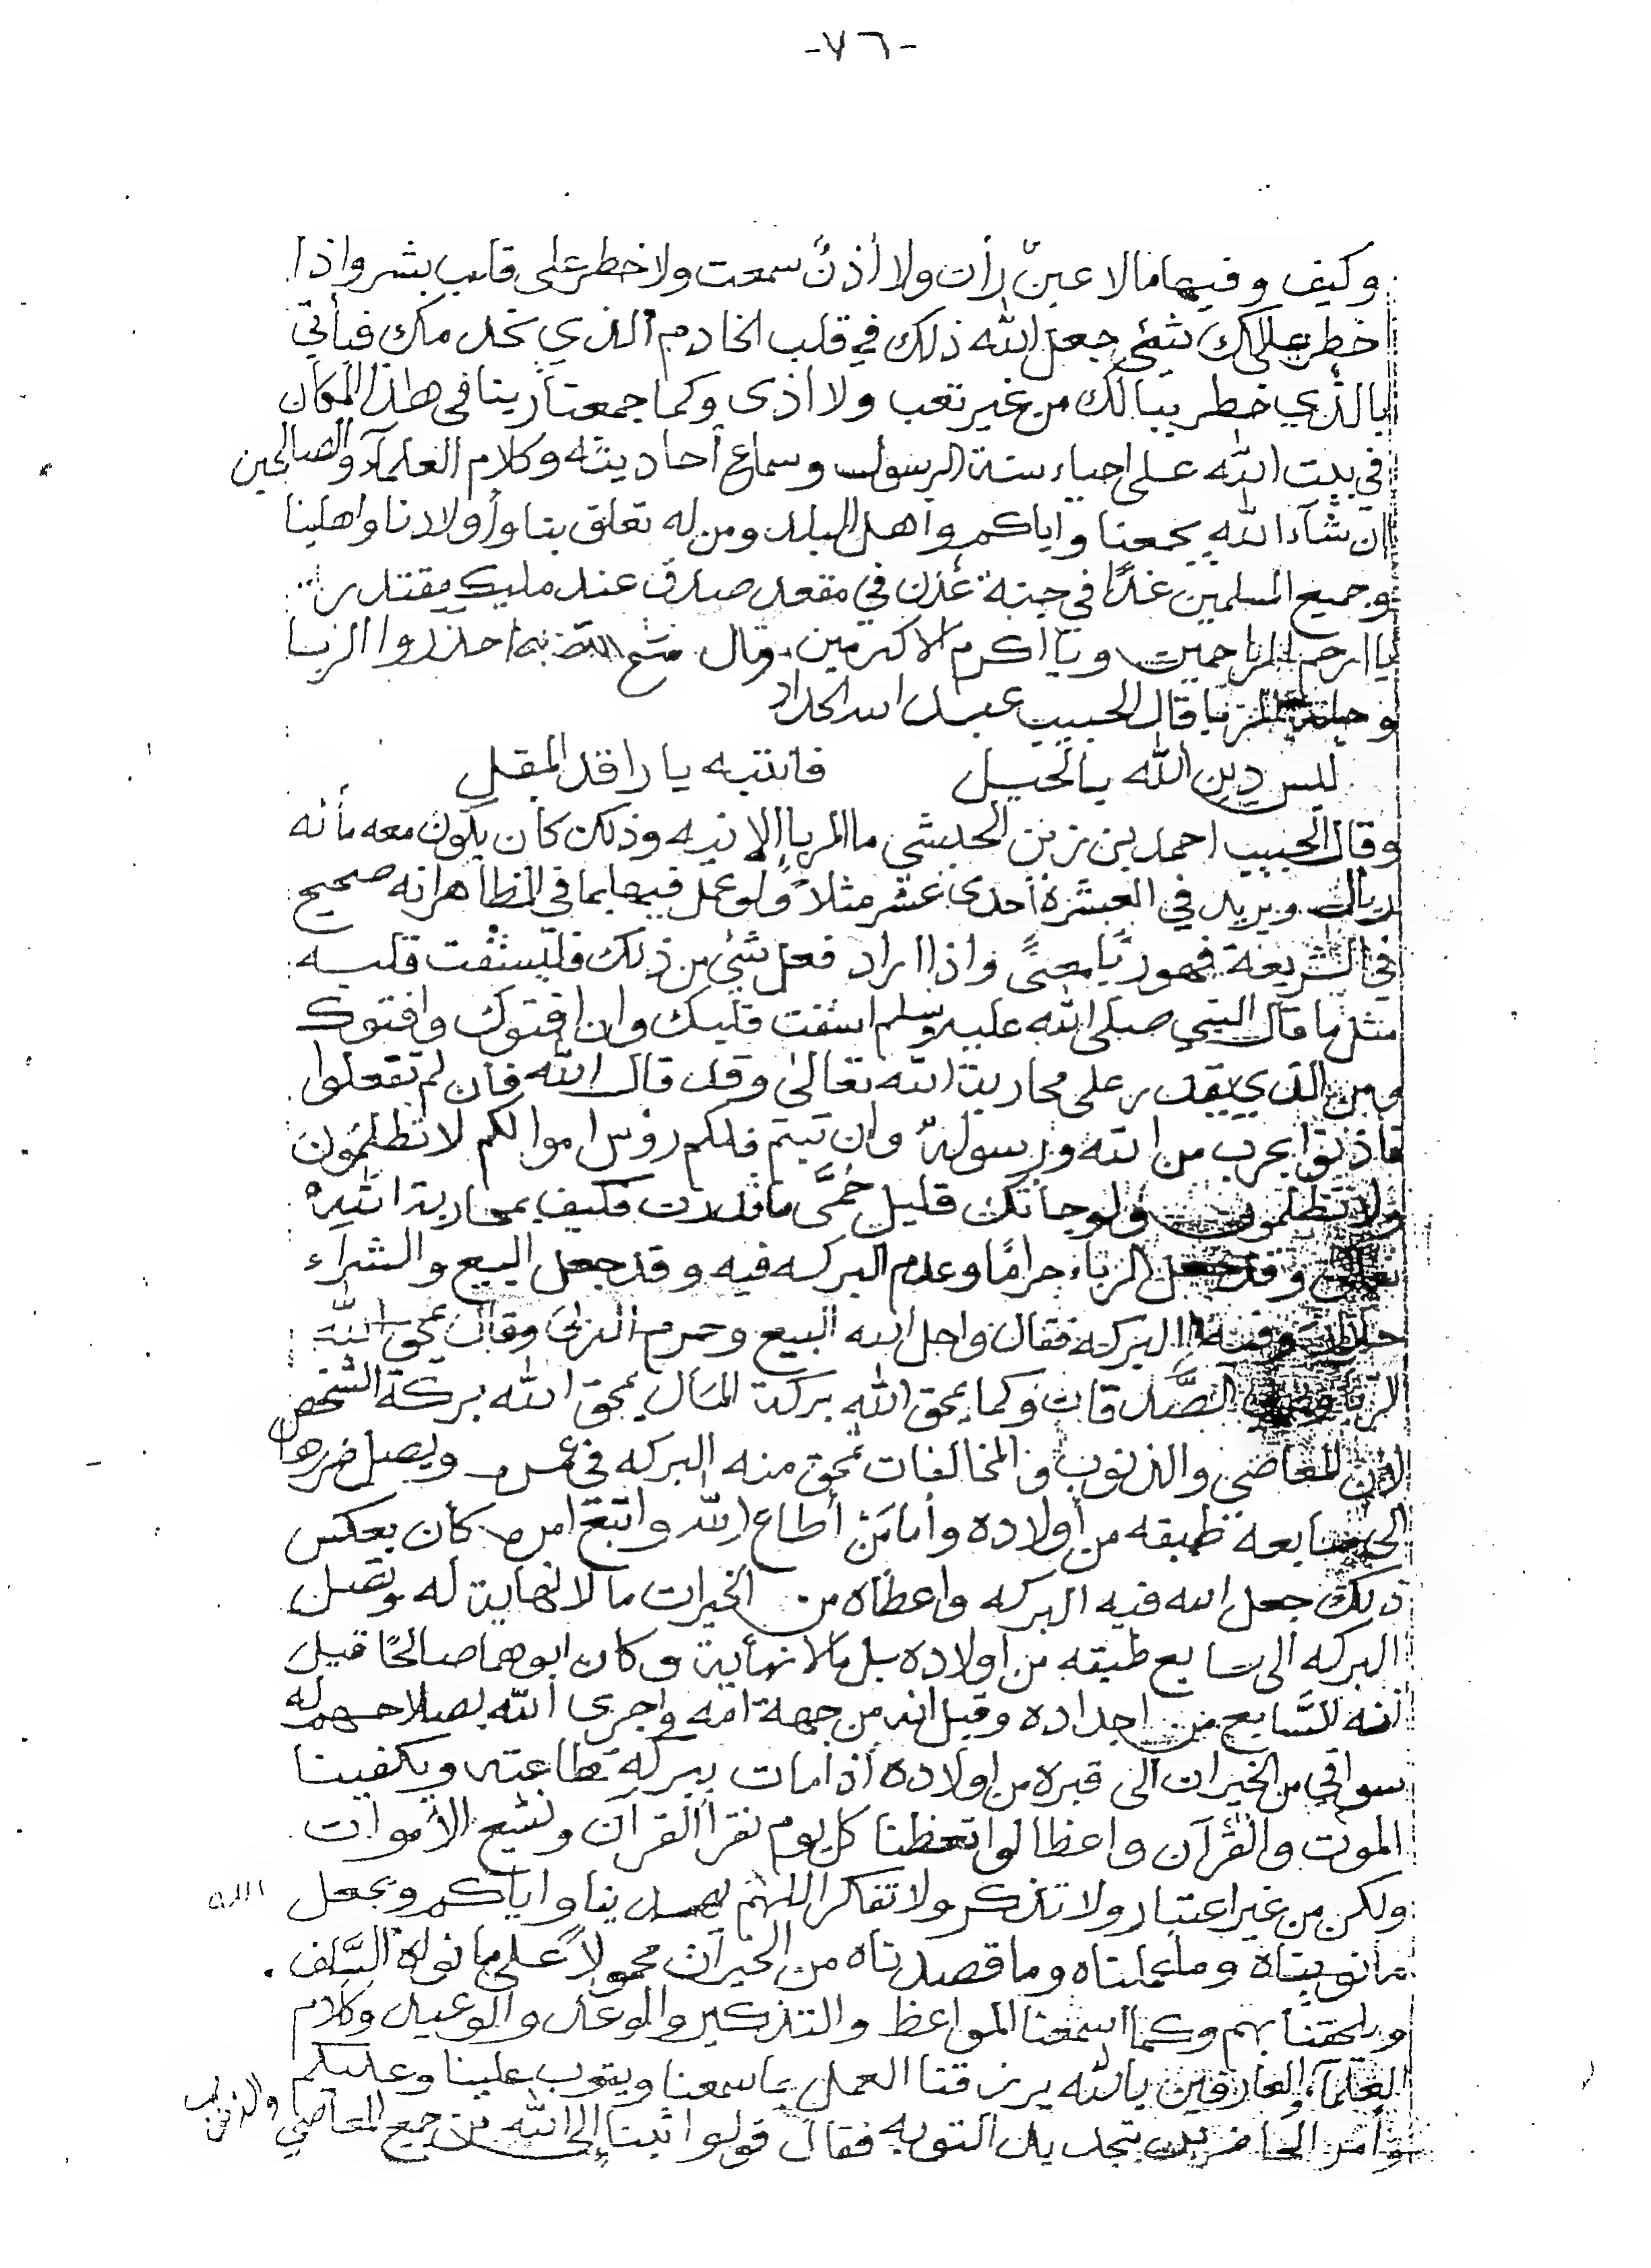 -٧٦-
وكيف وفيها مالا عينٌ رأت ولا أذنٌ سمعت ولا خطر على قلب بشر واذا
خطر على بالك شئ جعل الله ذلك في قلب الخادم الذي يخدمك فيأتي
بالذي خطر ببالك من غير تعب ولا أذى وكما جمعنا ربنا في هذا المكان
في بيت الله على احياء سنة الرسول وسماع أحاديثه وكلام العلمآء والصالحين
ان شآء الله يجمعنا واياكم وأهل البلد ومن له تعلق بنا وأولادنا واهلينا
وجميع المسلمين غدًا في جنة عدن في مقعد صدق عند مليك مقتدر
ياارحم الراحمين ويا اكرم الاكرمين وقال متع الله به احذروا الربا
وحيلة الربا قال الحبيب عبد الله الحداد
ليس دين الله بالحيل فانتبه يا راقد المقل
وقال الحبيب احمد بن زين الحبشي ما الربا إلا نيه وذلك كأن يكون معه مأنه
ريال ويريد في العشره أحدى عشر مثلاً ولو عمل فيها بما في الظاهر انه صحيح
في الشريعة فهو ربًا معنىً واذا اراد فعل شئ من ذلك فليستفت قلبه
مثل ما قال النبي صلى الله عليه وسلم استفت قلبك وان افتوك وافتوك
ومن الذي يقدر على محاربة الله تعالى وقد قال الله فان لم تفعلوا
فأذنوا بحرب من الله ورسوله وان تبتم فلكم رؤس اموالكم لا تظلمون
ولا تظلمون ولو جاتك قليل حمَّى ما قدرت فكيف بمحاربة الله
تعالى وقد جعل الرباء حرامًا وعدم البركه فيه وقد جعل البيع والشرآء
حلال وفيه البركه فقال واحل الله البيع وحرم الربى وقال يمحق الله
الربا ويربي الصَّدقات وكما يمحق الله بركة المال يمحق الله بركة الشخص
لان المعاصي والذنوب والمخالفات تمحق منه البركه في عمره ويصل ضررها
الى سابعه طبقه من أولاده وأما مَنْ أطاع الله واتبع امره كان بعكس
ذلك جعل الله فيه البركه واعطاه من الخيرات ما لا نهاية له وتصل
البركه الى سابع طبقه من اولاده بل بلا نهاية وكان ابوهما صالحًا قيل
انه السَّابع من اجداده وقيل انه من جهة امه واجرى الله بصلاحهم له
سواقي من الخيرات الى قبره من اولاده أذا مات ببركة طاعته ويكفينا
الموت والقرآن واعظا لو اتعظنا كل يوم نقرأ القرآن ونشيع الأموات
ولكن من غير اعتبار ولا تذكر ولا تفكر اللهم يهدينا واياكم ويجعل الله
مانويناه وماعملناه وما قصدناه من الخيرات محمولاً على مانواه السَّلف
ويلحقنا بهم وكما اسمعنا المواعظ والتذكير والوعد والوعيد وكلام
العلمآء العارفين بالله يرزقنا العمل بما سمعنا ويتوب علينا وعليكم
وأمر الحاضرين بتجديد التوبه فقال قولوا تبنا إلى الله من جميع المعاصي والذنوب